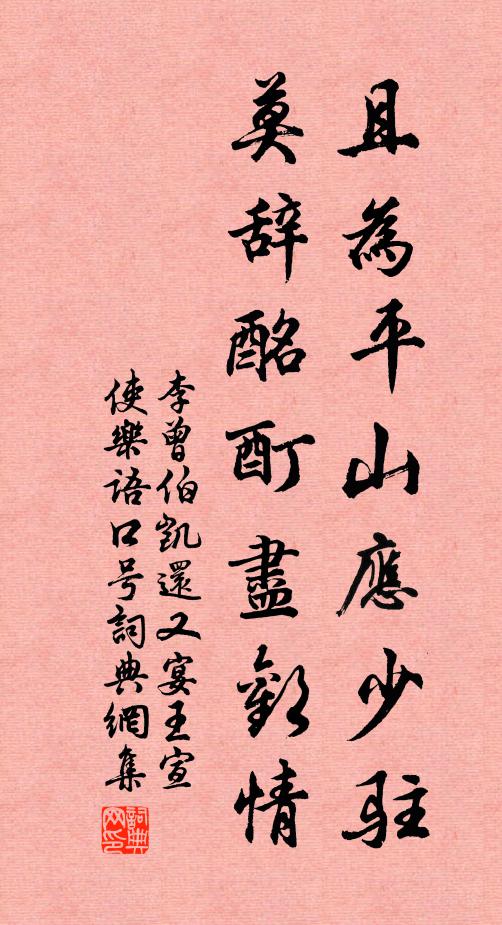 且為平山應少駐
莫辞酩酊盡歡情
李曾伯凱還又宴王宣
使樂語口号詞典網集
詞典
网印